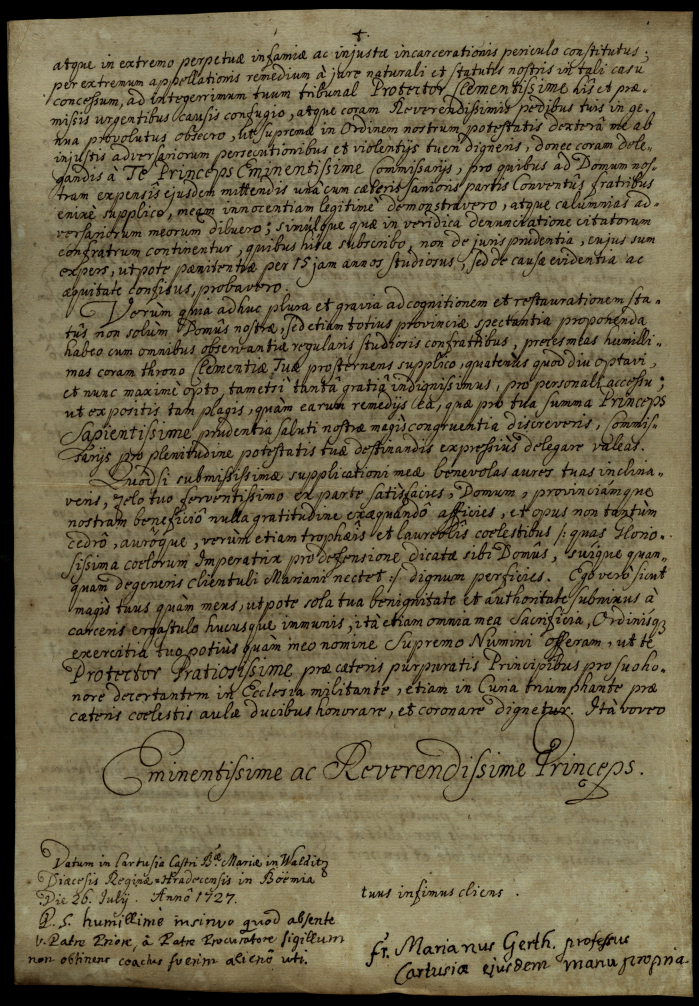 †
atque in extremo perpetuæ infamiæ ac injustæ incarcerationis periculo constitutus;
per extremum appellationis remedium à jure naturali et statutis nostris in tali casu
concessum, ad integerrimum tuum tribunal Protector Clementissime his et præ-
missis urgentibus causis confugio, atque coram Reverendissimis pedibus tuis in ge-
nua provolutus obsecro, ut supremæ in Ordinem nostrum potestatis dexterâ me ab
injustis adversariorum persecutionibus et violentijs tueri digneris, donec coram dele-
gandis à Te Princeps Eminentissime Commissarijs, pro quibus ad Domum nos-
tram expensis ejusdem mittendis unà cum cæteris sanioris partis Conventûs fratribus
enixè supplico, meam innocentiam legitimè demonstravero, atque calumnias ad-
versariorum meorum diluero; simulque quæ in veridica denunciatione citatorum
confratrum continentur, quibus hisce subscribo, non de juris prudentia, cujus sum
expers, utpote pænitentiæ per 15 jam annos studiosus, sed de causæ evidentia ac
æquitate confisus, probavero.
Verùm quia adhuc plura et gravia ad cognitionem et restaurationem sta-
tûs non solùm Domûs nostræ, sed etiam totius provinciæ spectantia proponenda
habeo cum omnibus observantiæ regularis studiosis confratribus, preces meas humilli-
mas coram throno Clementiæ Tuæ prosternens supplico, quatenùs quod diu optavi,
et nunc maximè opto, tametsi tantâ gratiâ indignissimus, pro personali accessu;
ut expositis tam plagis, quàm earum remedijs ea, quæ pro tua summa Princeps
Sapientissime prudentia saluti nostræ magis congruentia discreveris, Commis-
sarijs pro plenitudine potestatis tuæ destinandis expressiùs delegare valeas.
Quod si submississimæ supplicationi meæ benevolas aures tuas inclina-
veris, Zelo tuo ferventissimo ex parte satisfacies, Domum, provinciámque
nostram beneficiô nulla gratitudine exæquandô afficies, et opus non tantùm
cedrô, auroque, verùm etiam trophæis et laureolis coelestibus /: quas Glorio-
sissima coelorum Imperatrix pro defensione dicatæ sibi Domus, suique quan-
quam degeneris clientuli Mariani nectet :/ dignum perficies. Ego verò sicut
magis tuus quàm meus, utpote sola tua benignitate et authoritate submixus à
carceris ergastulo hucusque immunis, ità etiam omnia mea Sacrificia, Ordinisq
exercitia tuo potiùs quàm meo nomine Supremo Numini offeram, ut te
Protector Gratiosissime præ cæteris purpuratis Principibus pro suo ho-
nore decertantem in Ecclesia militante, etiam in Curia triumphante præ
cæteris coelestis aulæ ducibus honorare, et coronare dignetur. Ità voveo
Eminentissime ac Reverendissime Princeps.
Datum in Cartusia Castri Bæ Mariæ in Walditz
Diæcesis Reginæ=Hradecensis in Boëmia
Die 26. Julij. Annô 1727.
tuus infimus cliens.
P. S. humillimè insinuo quod absente
v. Patre Priore, à Patre Procuratore sigillum
non obtinens coactus fuerim alienô uti.
fr. Marianus Gerth. professus
Cartusiæ ejusdem manu propria